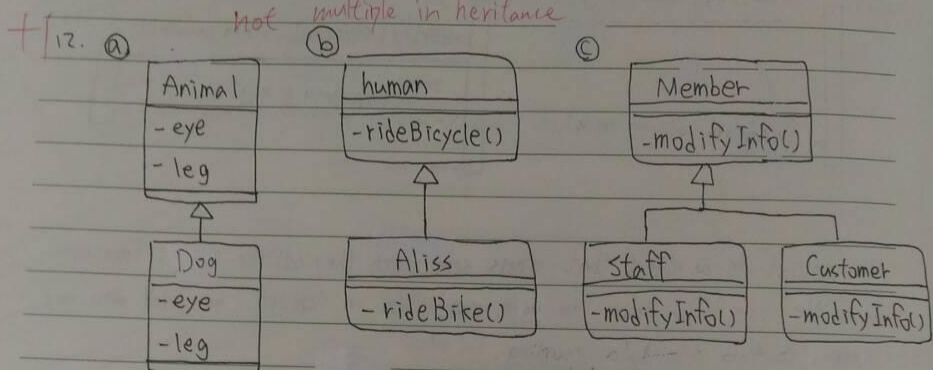 not multiple in heritance
12. ⓐ ⓑ ⓒ
Animal
-eye
-leg
Dog
-eye
-leg
human
-rideBicycle()
Aliss
-rideBike()
Member
-modifyInfo()
Staff
-modifyInfo()
Customer
-modifyInfo()